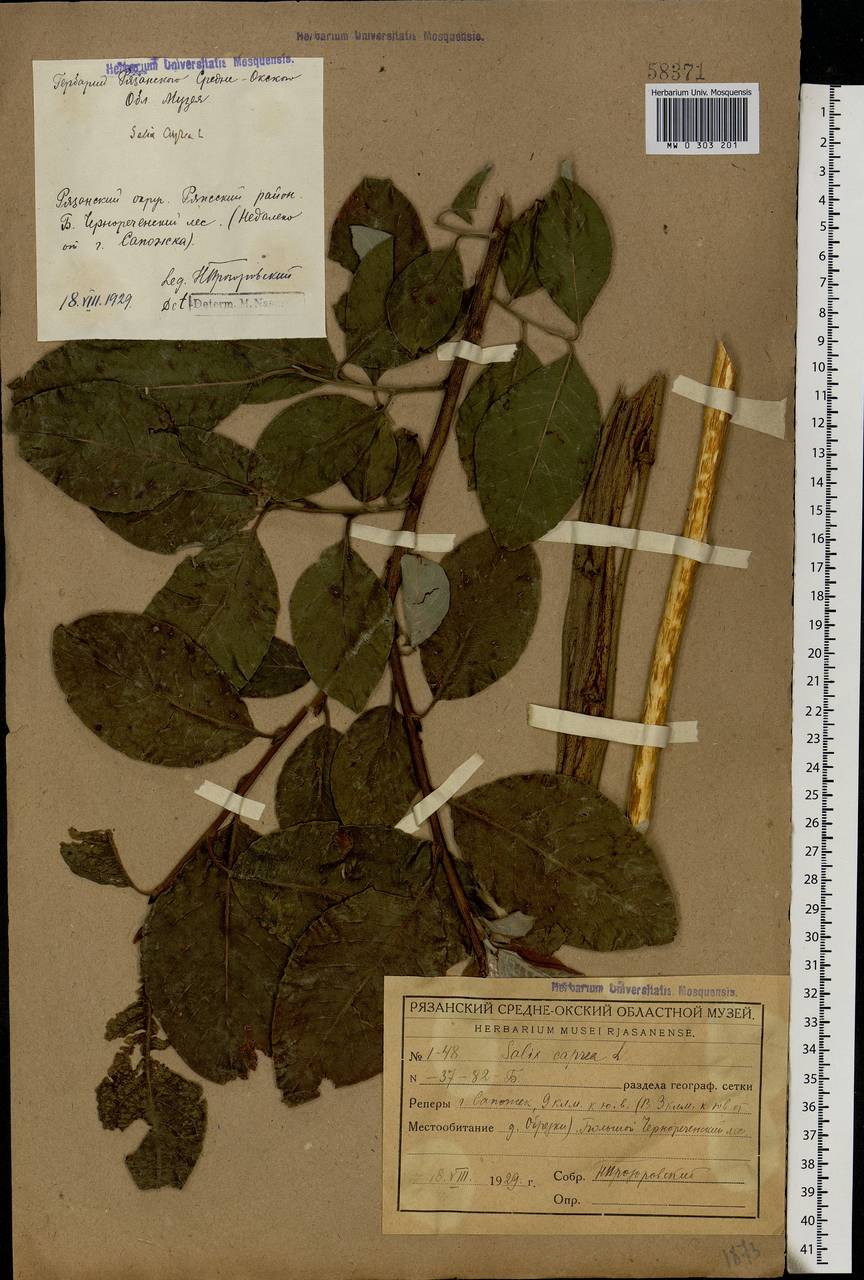 Herbarium Universitatis Mosquensis.
58371
Herbarium Univ. Mosquensis
MW 0 303 201
Herbarium Universitatis Mosquensis.
Гербарий Рязанского Средне-Окского
Обл. Музея
Salix Caprea L
Рязанский округ. Ряжсский район.
Б. Чернореченский лес. (Недалеко
от г. Сапожка).
Leg. НПрозоровский
18.VIII.1929
Det. Determ. M.
Herbarium Universitatis Mosquensis.
РЯЗАНСКИЙ СРЕДНЕ-ОКСКИЙ ОБЛАСТНОЙ МУЗЕЙ.
HERBARIUM MUSEI RJASANENSE.
№ 1-48 Salix caprea L
N -37-82-Б раздела географ. сетки
Реперы г. Сапожек, 9 клм. к ю.в. (В 3 клм. к юв от
Местообитание д. Обрезки) Большой Чернореченский лес
18.VIII. 1929. г. Собр. НПрозоровский
Опр.
1873
1
2
3
4
5
6
7
8
9
10
11
12
13
14
15
16
17
18
19
20
21
22
23
24
25
26
27
28
29
30
31
32
33
34
35
36
37
38
39
40
41